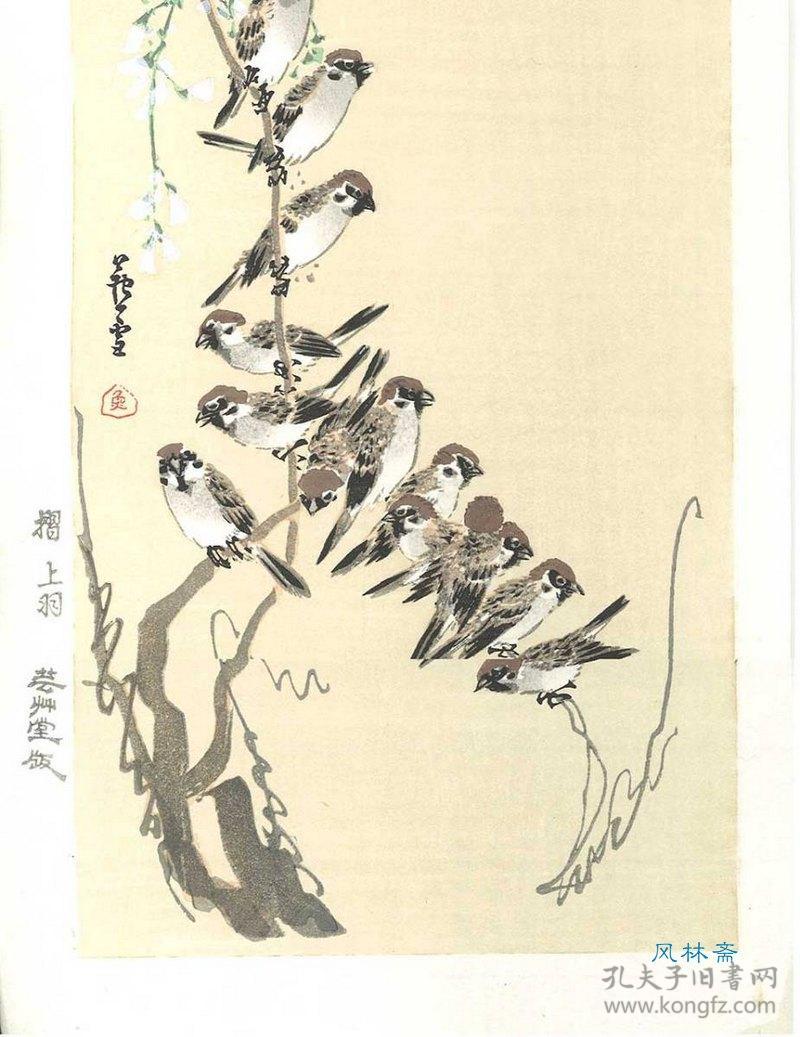 蘆雪
魚
摺 上羽
芸艸堂版
风林斋
孔夫子旧书网
www.kongfz.com